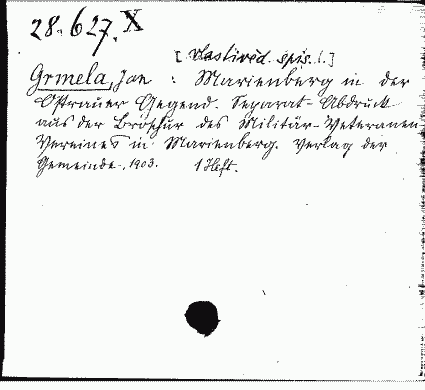 28.627.X
[Vlastivěd. spis.]
Grmela, Jan : Marienberg in der
Ostrauer Gegend. Separat-Abdruck
aus der Bröschur des Militär-Veteranen
Vereines in Marienberg. Verlag der
Gemeinde, 1903. 1 Heft.